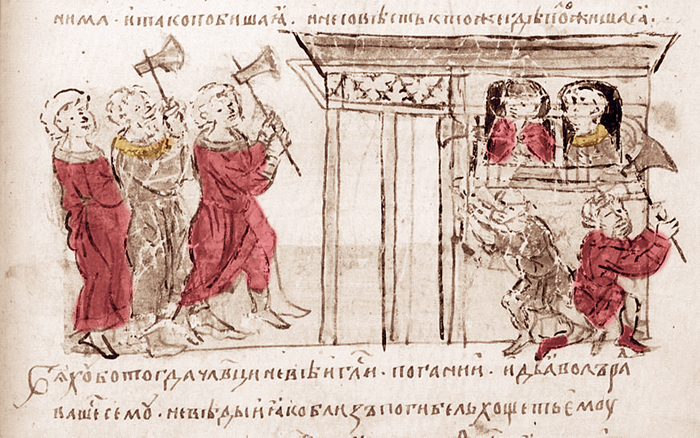 нима · и тако побиша ѧ · и несвѣсть ктоже гдѣ положиша ѧ ·
Бѧхꙋ бо тогда чл҃вци невѣигл҃си · погании · и дьꙗволъ ра
ваше семꙋ · невѣдыи ꙗко близъ погибель хощеть емоу